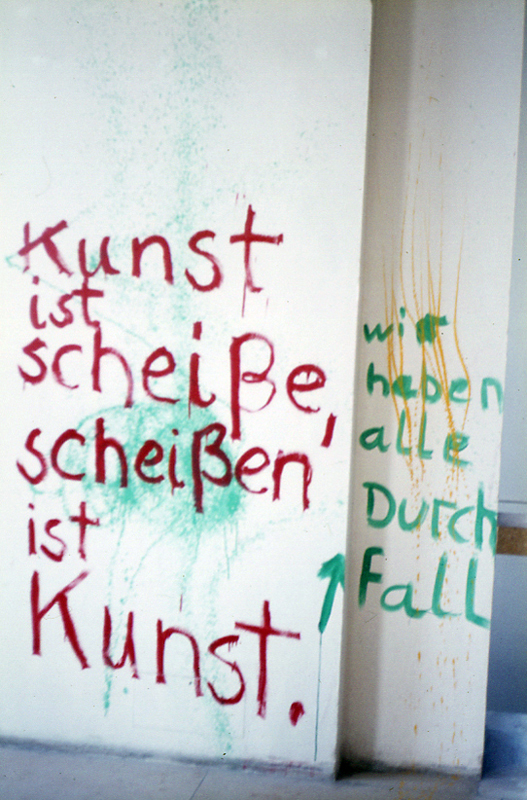 Kunst
ist
scheiße,
scheißen
ist
Kunst.
wir
haben
alle
Durch
Fall